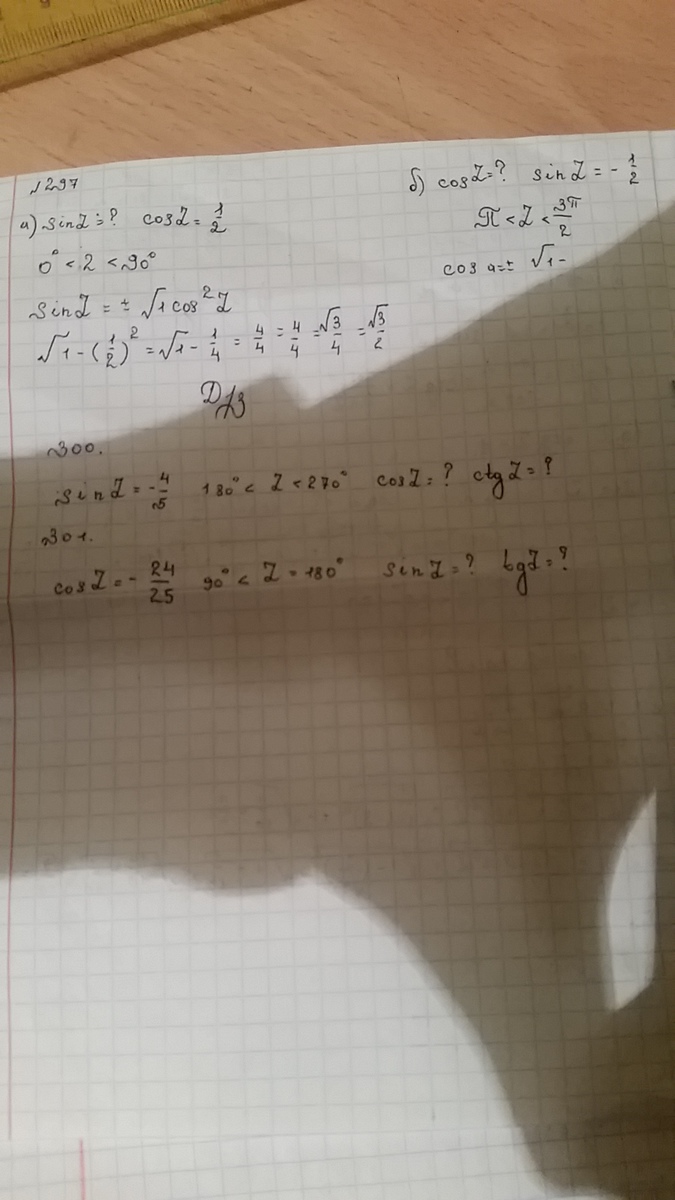 №297
а) sin2 = ? cos2 = 1/2
0° < 2 < 90°
sin2 = ± √1 cos²2
√1 - (1/2)² = √1 - 1/4 = 4/4 = 4/4 = √3/4 = √3/2
б) cos2 = ? sin2 = - 1/2
π < 2 < 3π/2
cos a = ± √1 -
Д/з
300.
sin2 = - 4/5 180° < 2 < 270° cos2 = ? ctg2 = ?
301.
cos2 = - 24/25 90° < 2 = 180° sin2 = ? tg2 = ?